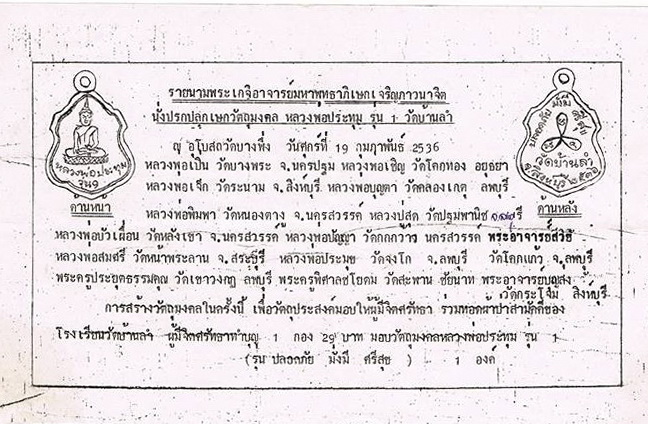 รายนามพระเกจิอาจารย์มหาพุทธาภิเษกเจริญภาวนาจิต
นั่งปรกปลุกเษกวัตถุมงคล หลวงพ่อประทุม รุ่น 1 วัดบ้านลำ
ณ อุโบสถวัดบางพึ่ง วันศุกร์ที่ 19 กุมภาพันธ์ 2536
หลวงพ่อเปิ่น วัดบางพระ จ.นครปฐม หลวงพ่อเชิญ วัดโคกทอง อยุธยา
หลวงพ่อเจ๊ก วัดระนาม จ.สิงห์บุรี หลวงพ่อบุญตา วัดคลองเกตุ ลพบุรี
หลวงพ่อประทุม
รุ่น๑
ด้านหน้า
ปลอดภัย มั่งมี ศรีสุข
วัดบ้านลำ
ด้านหลัง
หลวงพ่อพิมพา วัดหนองตางู จ.นครสวรรค์ หลวงปู่สุด วัดปฐมพานิช
หลวงพ่อบัวเผื่อน วัดหลังเขา จ.นครสวรรค์ หลวงพ่อปัญญา วัดกกกว้าว นครสวรรค์ พระอาจารย์
หลวงพ่อสมศรี วัดหน้าพระลาน จ.สระบุรี หลวงพ่อประมุข วัดจงโก จ.ลพบุรี วัดโคกแก้ว จ.ลพบุรี
พระครูประยุตธรรมคุณ วัดเขาวงกฎ ลพบุรี พระครูพิศาลชโยดม วัดสะพาน ชัยนาท พระอาจารย์บุญส่ง
วัดกระโจม สิงห์บุรี
การสร้างวัตถุมงคลในครั้งนี้ เพื่อวัตถุประสงค์มอบให้ผู้มีจิตศรัทธา ร่วมทอดผ้าป่าสามัคคีของ
โรงเรียนวัดบ้านลำ ผู้มีจิตศรัทธาทำบุญ 1 กอง 29 บาท มอบวัตถุมงคลหลวงพ่อประทุม รุ่น 1
(รุ่น ปลอดภัย มั่งมี ศรีสุข ) 1 องค์